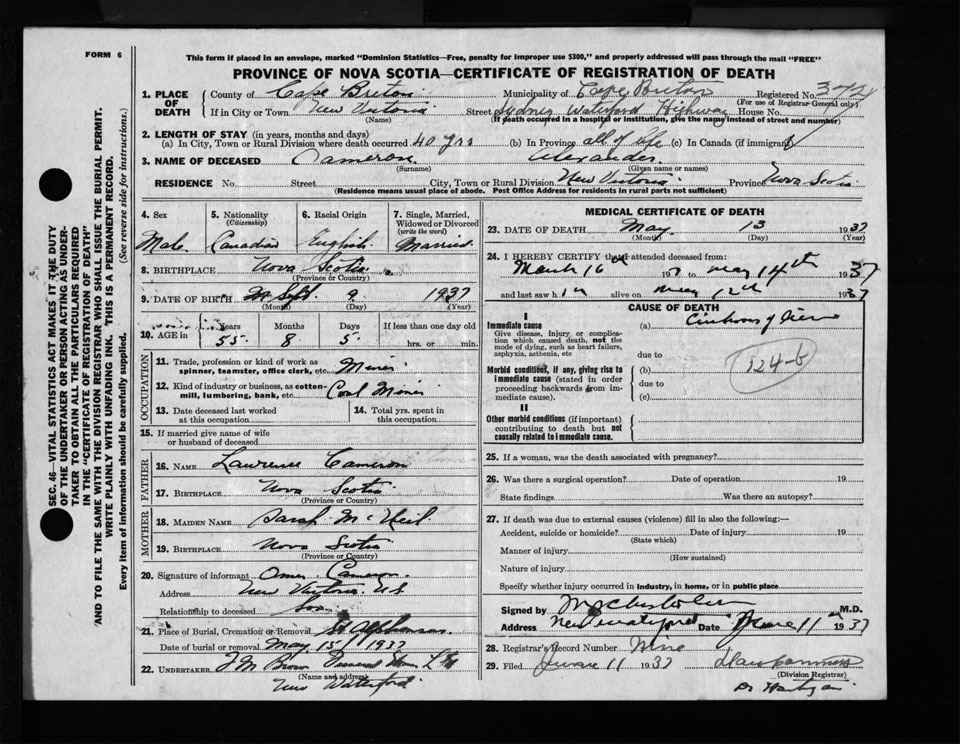 FORM 6
This form if placed in an envelope, marked "Dominion Statistics—Free, penalty for improper use $300," and properly addressed will pass through the mail "FREE"
PROVINCE OF NOVA SCOTIA—CERTIFICATE OF REGISTRATION OF DEATH
SEC. 46—VITAL STATISTICS ACT MAKES IT THE DUTY
OF THE UNDERTAKER OR PERSON ACTING AS UNDER-
TAKER TO OBTAIN ALL THE PARTICULARS REQUIRED
IN THE "CERTIFICATE OF REGISTRATION OF DEATH"
AND TO FILE THE SAME WITH THE DIVISION REGISTRAR WHO SHALL ISSUE THE BURIAL PERMIT.
WRITE PLAINLY WITH UNFADING INK. THIS IS A PERMANENT RECORD.
Every item of information should be carefully supplied. (See reverse side for instructions.)
1. PLACE OF DEATH County of Cape Breton Municipality of Cape Breton Registered No. 372
(For use of Registrar-General only)
If in City or Town New Victoria Street Sydney Waterford Highway House No.
(Name) (If death occurred in a hospital or institution, give the name instead of street and number)
2. LENGTH OF STAY (in years, months and days)
(a) In City, Town or Rural Division where death occurred 40 yrs (b) In Province all of life (c) In Canada (if immigrant)
3. NAME OF DECEASED Cameron Alexander
(Surname) (Given name or names)
RESIDENCE No. Street City, Town or Rural Division New Victoria Province Nova Scotia
(Residence means usual place of abode. Post Office Address for residents in rural parts not sufficient)
4. Sex Male
5. Nationality (Citizenship) Canadian
6. Racial Origin English
7. Single, Married, Widowed or Divorced (write the word) Married
8. BIRTHPLACE Nova Scotia
(Province or Country)
9. DATE OF BIRTH Sept. 9 1937
(Month) (Day) (Year)
10. AGE in Years 55 Months 8 Days 5 If less than one day old
hrs. or min.
OCCUPATION
11. Trade, profession or kind of work as
spinner, teamster, office clerk, etc. Miner
12. Kind of industry or business, as cotton-
mill, lumbering, bank, etc. Coal Mines
13. Date deceased last worked
at this occupation
14. Total yrs. spent in
this occupation
15. If married give name of wife
or husband of deceased
FATHER
16. NAME Lawrence Cameron
17. BIRTHPLACE Nova Scotia
(Province or Country)
MOTHER
18. MAIDEN NAME Sarah McNeil
19. BIRTHPLACE Nova Scotia
(Province or Country)
20. Signature of informant Omer Cameron
Address New Victoria NS
Relationship to deceased Son
21. Place of Burial, Cremation or Removal St Alphonsus
Date of burial or removal May 15 1937
22. UNDERTAKER J M Brown Funeral Home Ltd
(Name and address)
New Waterford
MEDICAL CERTIFICATE OF DEATH
23. DATE OF DEATH May 13 1937
(Month) (Day) (Year)
24. I HEREBY CERTIFY that I attended deceased from:
March 16th 193 to May 14th 1937
and last saw h im alive on May 12th 1937
CAUSE OF DEATH
I
Immediate cause
Give disease, injury or complica-
tion which caused death, not the
mode of dying, such as heart failure,
asphyxia, asthenia, etc
(a) Cirrhosis of liver
due to
124-b
Morbid conditions, if any, giving rise to
immediate cause (stated in order
proceeding backwards from im-
mediate cause).
(b)
due to
(c)
II
Other morbid conditions (if important)
contributing to death but not
causally related to immediate cause.
25. If a woman, was the death associated with pregnancy?
26. Was there a surgical operation? Date of operation 19
State findings Was there an autopsy?
27. If death was due to external causes (violence) fill in also the following:—
Accident, suicide or homicide? Date of injury 19
(State which)
Manner of injury
(How sustained)
Nature of injury
Specify whether injury occurred in industry, in home, or in public place
Signed by M.D.
Address New Waterford Date June 11 1937
28. Registrar's Record Number Nine
29. Filed June 11 1937
(Division Registrar)